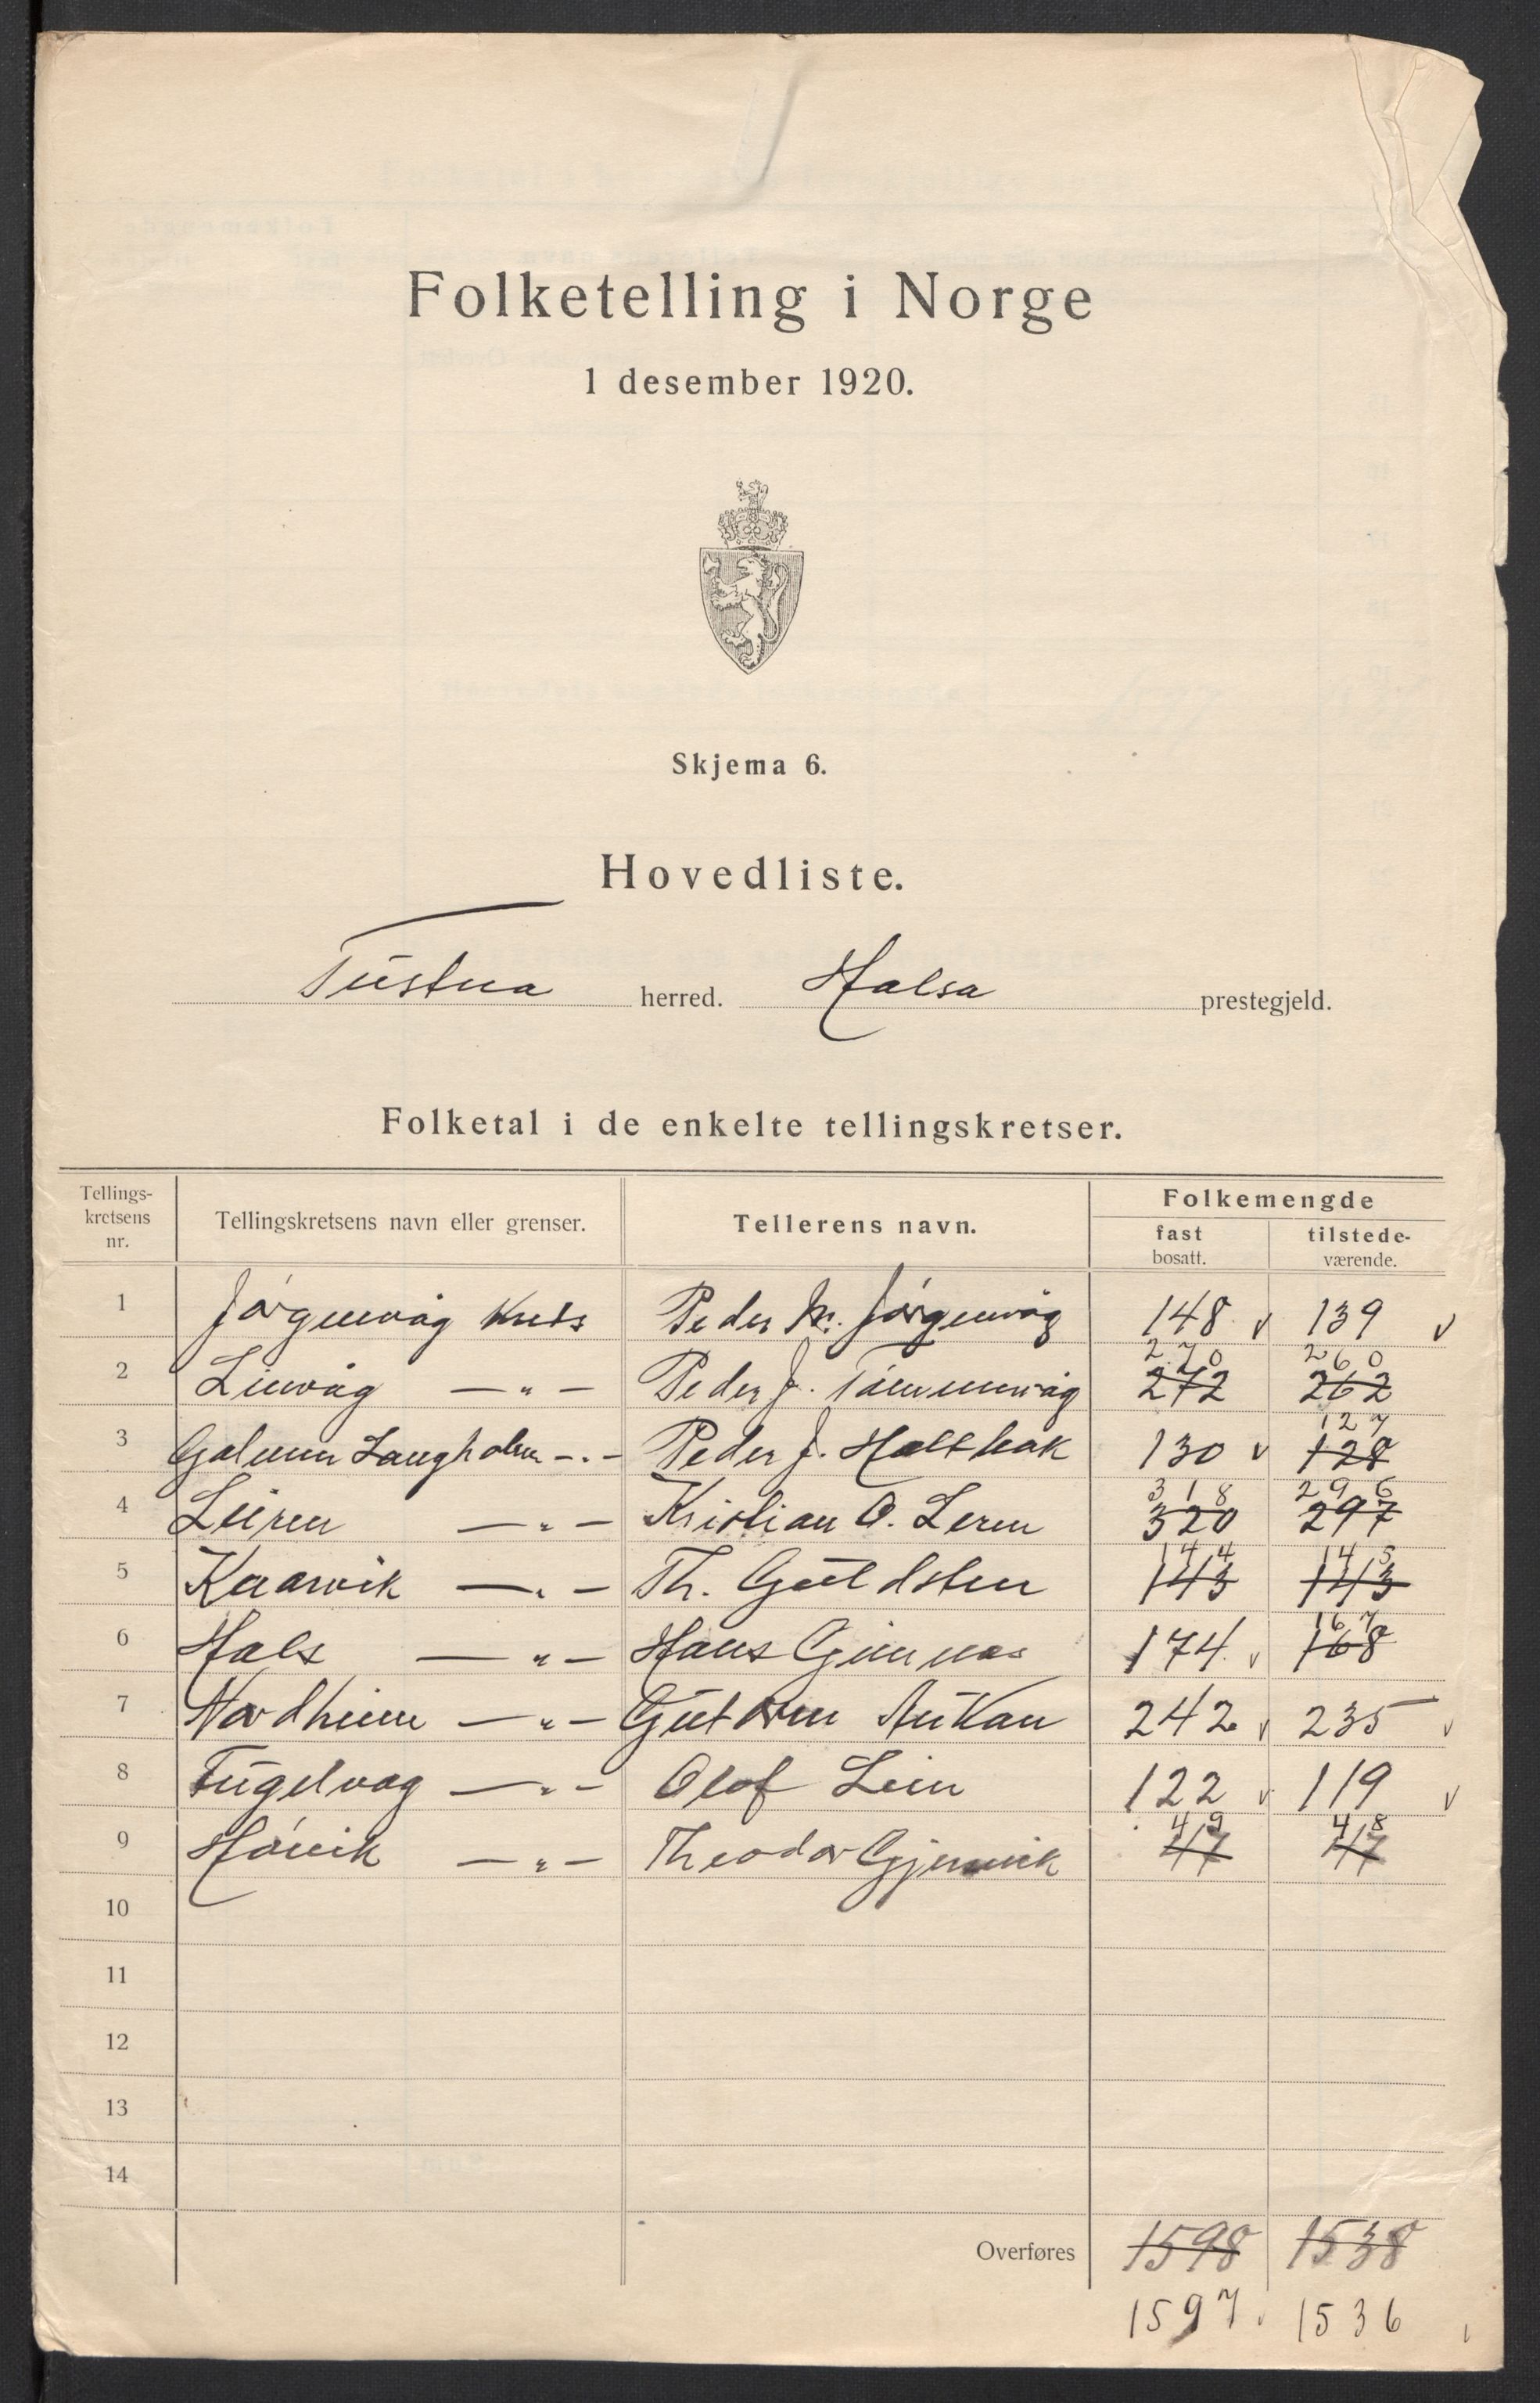 Folketelling i Norge
1 desember 1920.
Skjema 6.
Hovedliste.
Tustna herred. Halsa prestegjeld.
Folketal i de enkelte tellingskretser.
Tellings-kretsens nr. Tellingskretsens navn eller grenser. Tellerens navn. Folkemengde
fast bosatt. tilstede-værende.
1 Jörgenvåg Krets Peder Jörgenvåg 148 v 139 v
270 260
2 Linvåg — " — Peder J. 272 262
127
3 Golmen Langholm - " - Peder J. Haltbak 130 v 128
318 296
4 Leiren — " — Kristian O. Leren 320 297
144 145
5 Kvarvik — " — Th. Guldsten 143 143
167
6 Hals — " — Hans Gimnas 174 v 168
7 Nordheim — " — Gutorm Aukan 242 v 235 v
8 Fugelvåg — " — Olof Lein 122 v 119 v
49 48
9 — " — Theodor Gjernvik 47 47
10
11
12
13
14
Overføres 1598 1538
1597 v 1536 v